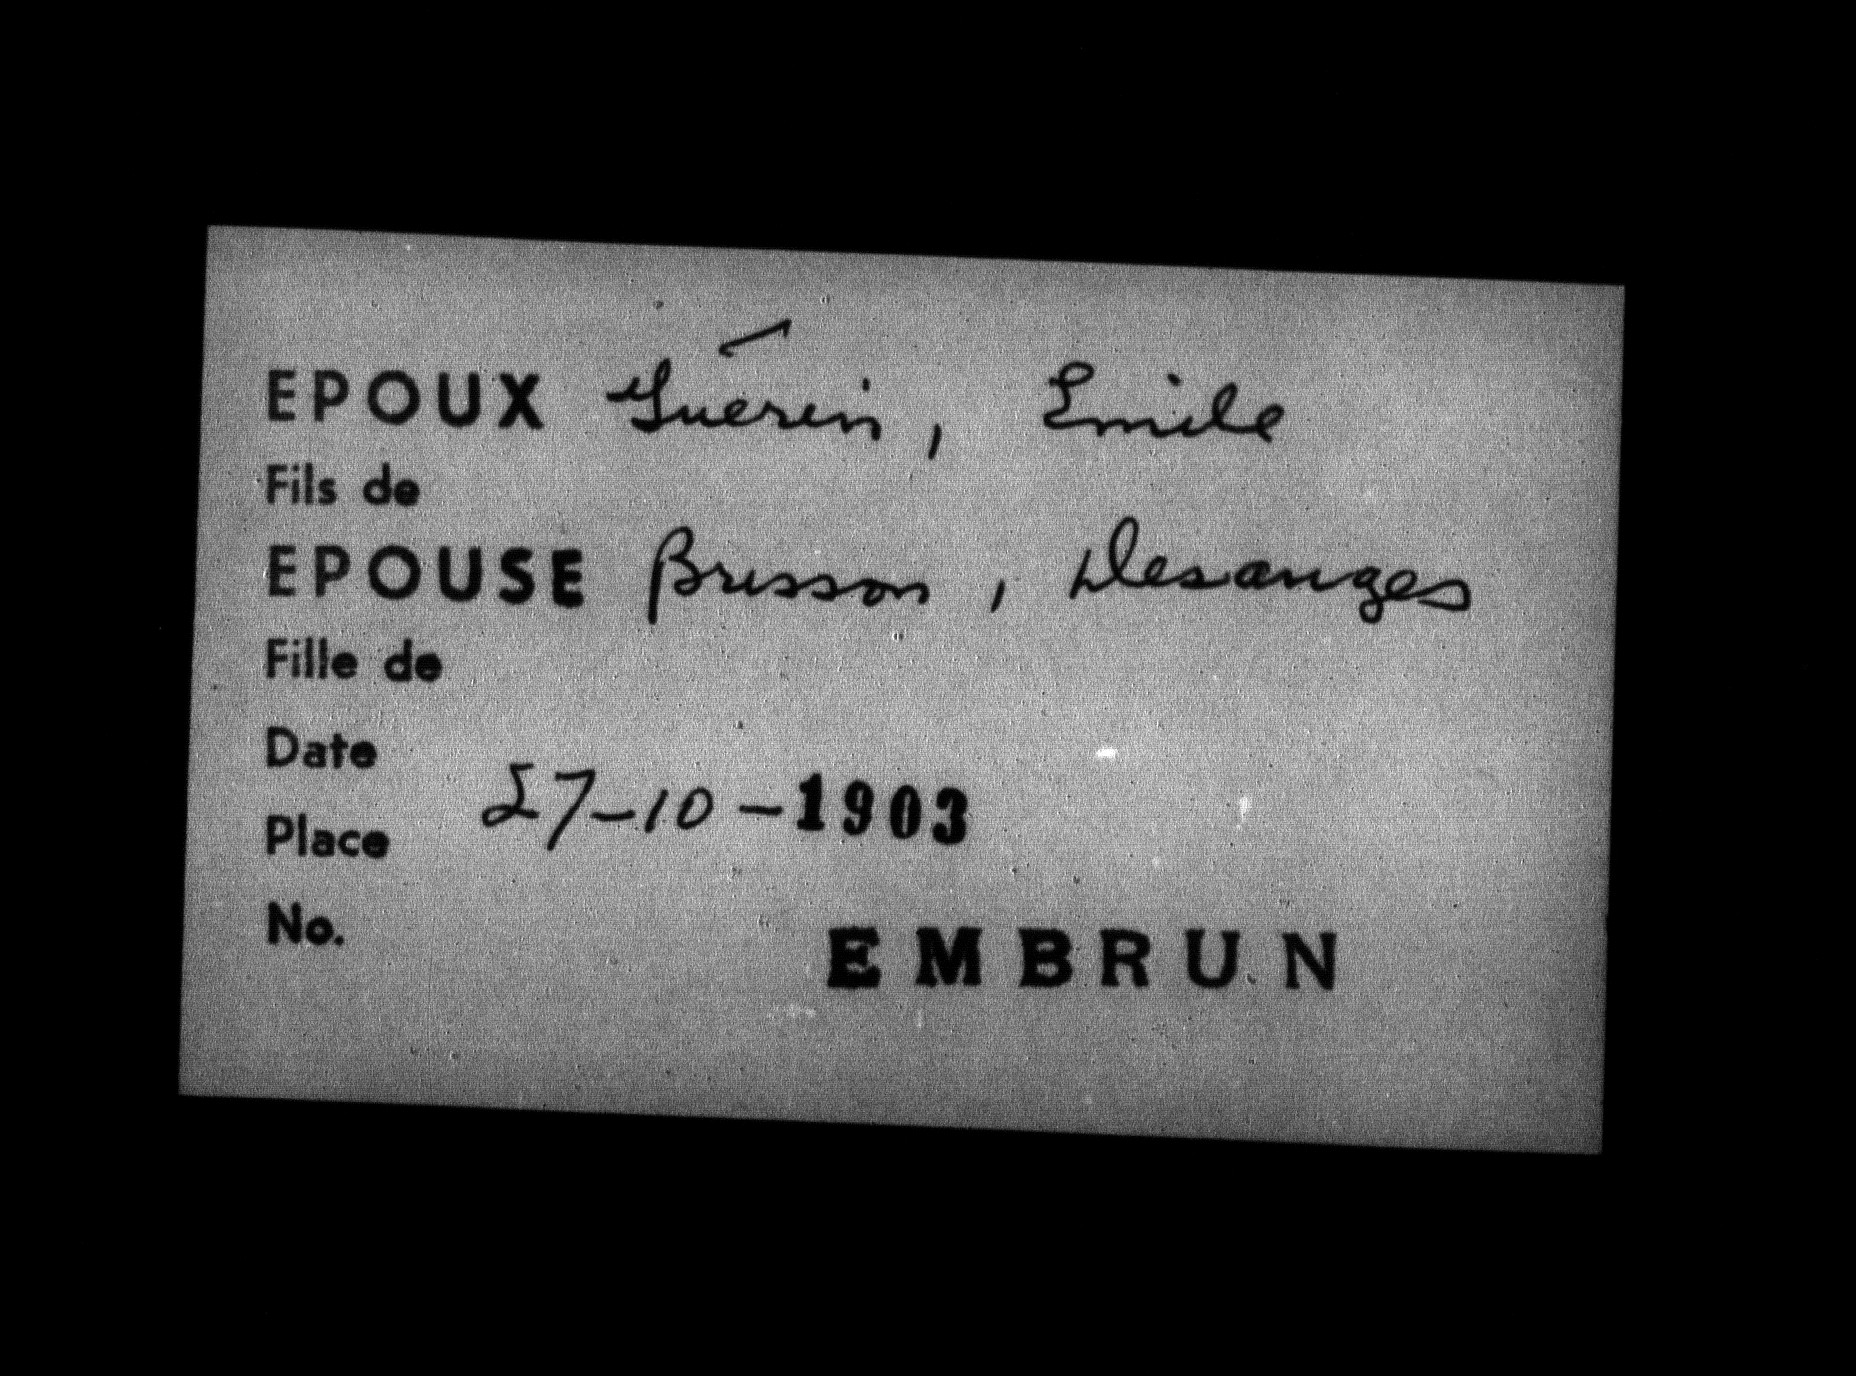 EPOUX Guérin, Emile
Fils de
EPOUSE Brisson, Desanges
Fille de
Date
27-10-1903
Place
No.
EMBRUN